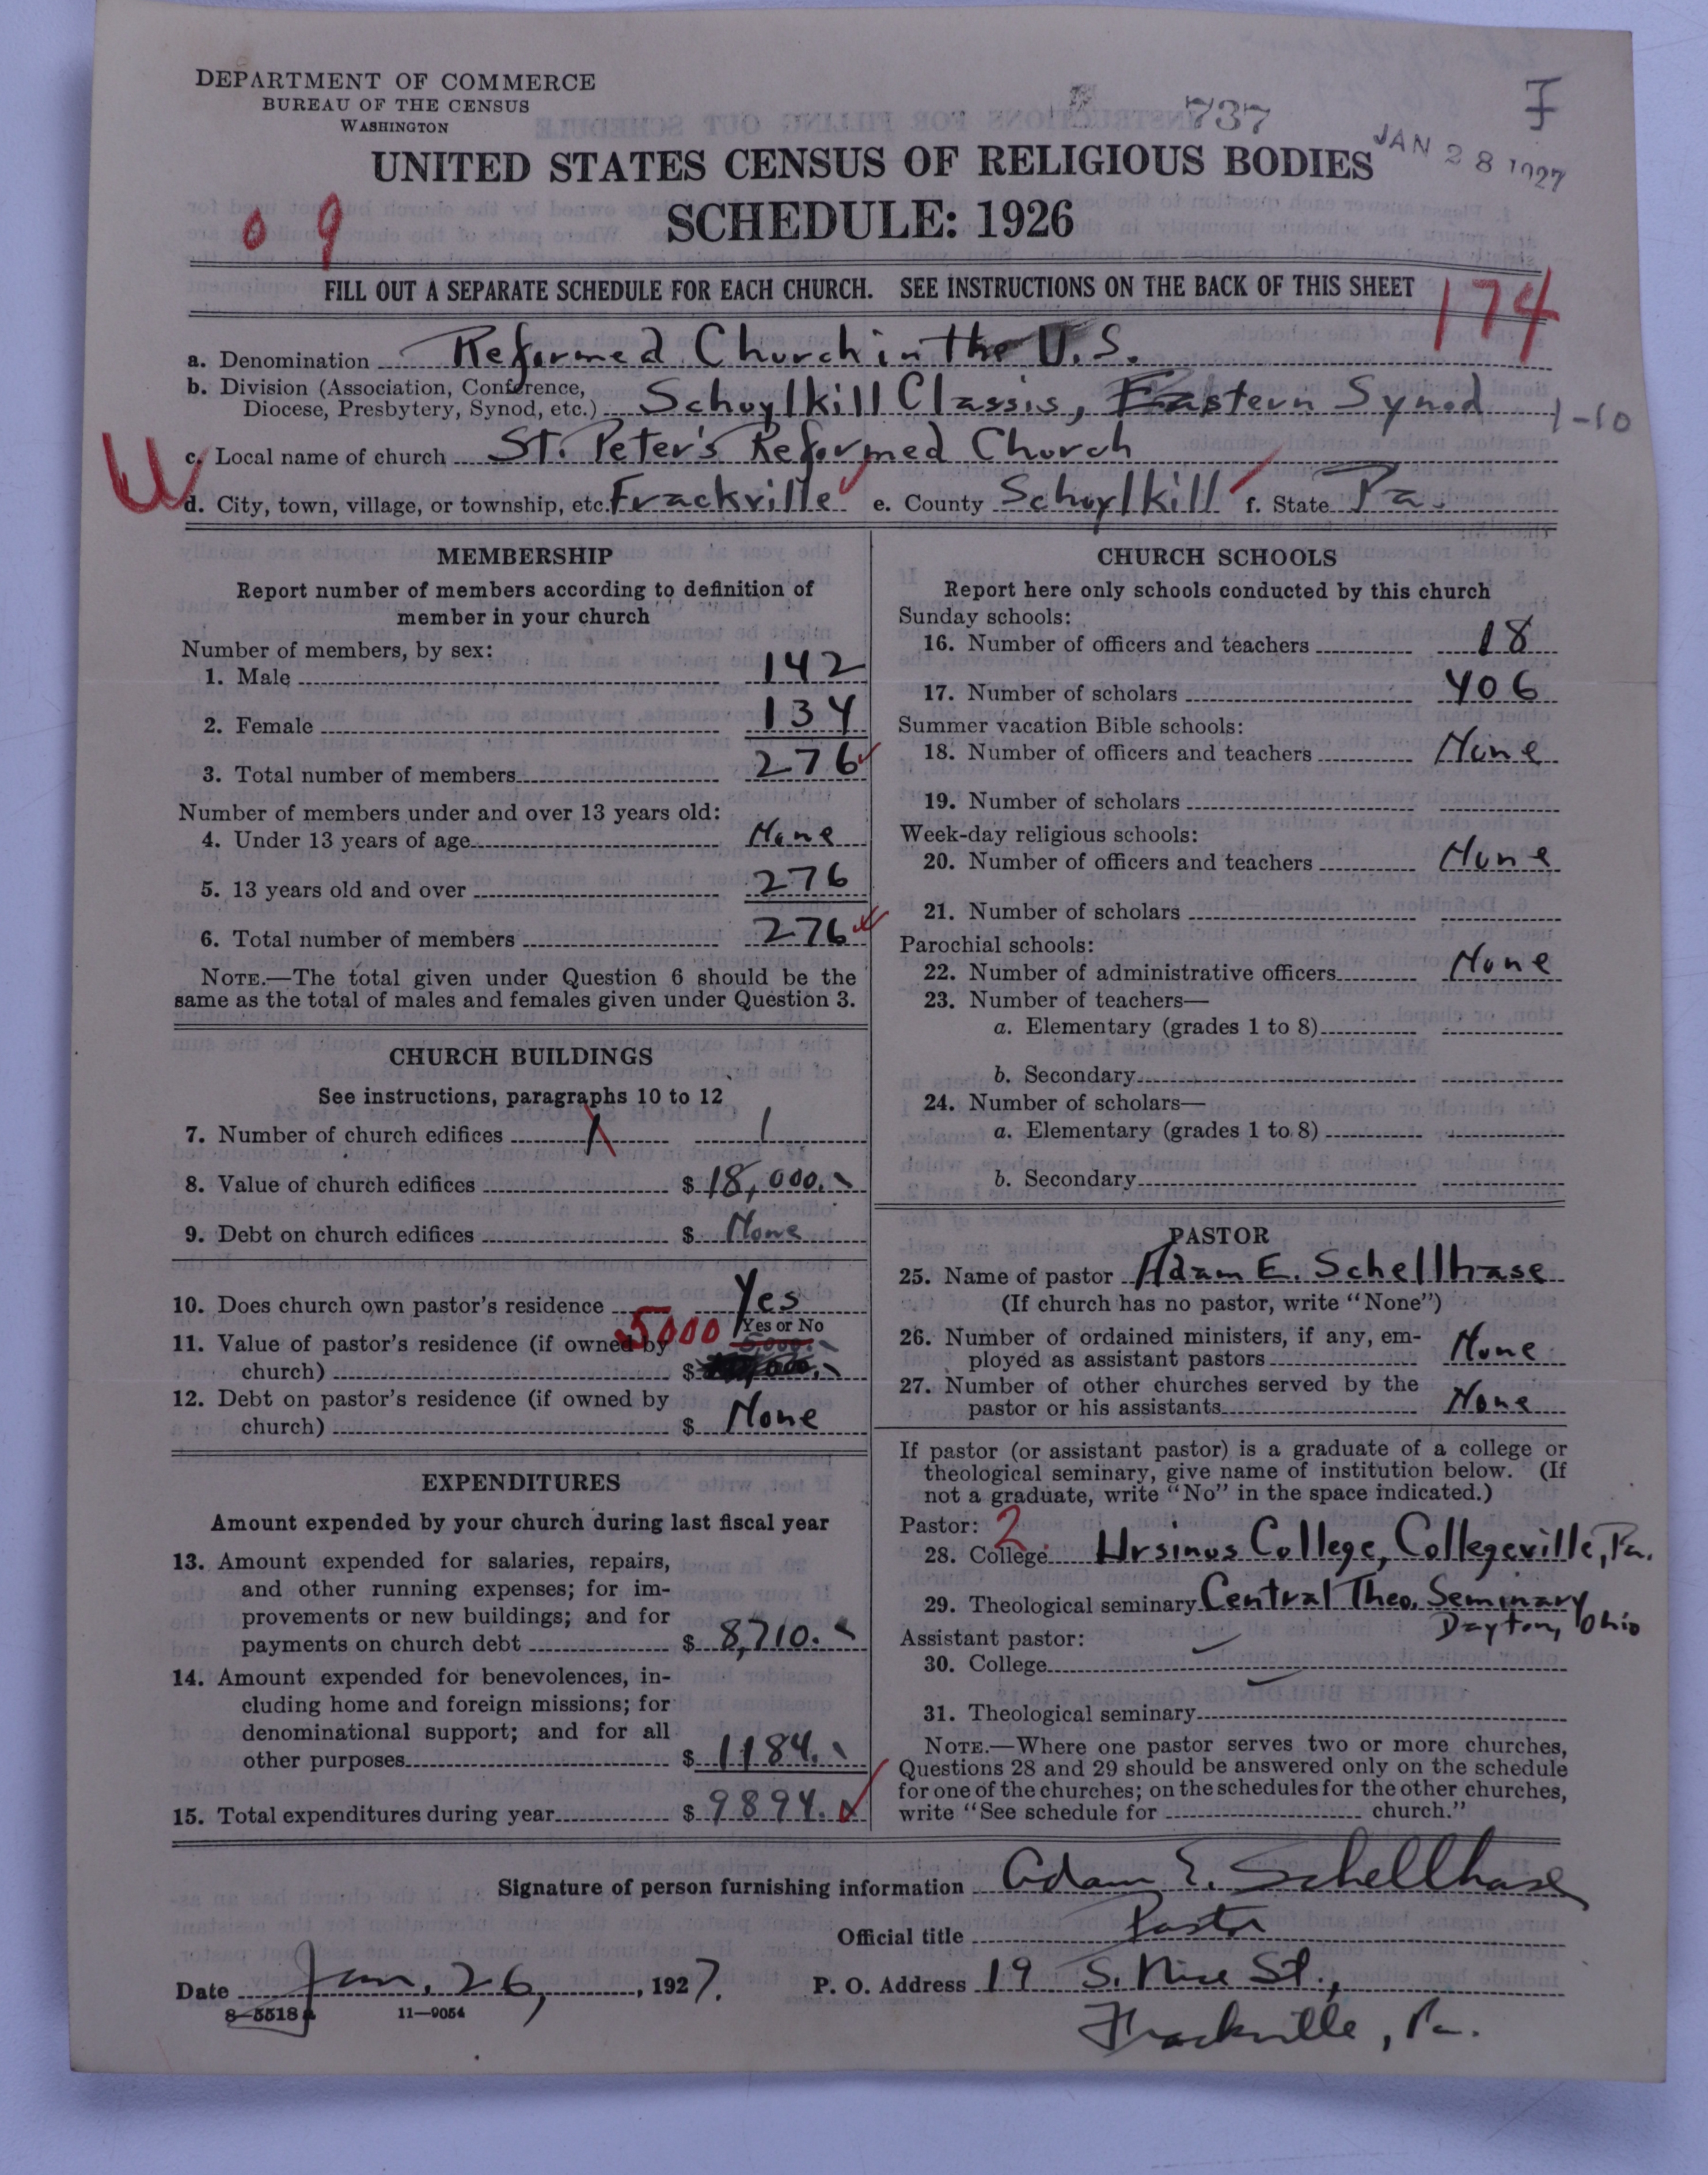 DEPARTMENT OF COMMERCE
BUREAU OF THE CENSUS
WASHINGTON
737
F
JAN 28 1927
UNITED STATES CENSUS OF RELIGIOUS BODIES
SCHEDULE: 1926
0 9
FILL OUT A SEPARATE SCHEDULE FOR EACH CHURCH. SEE INSTRUCTIONS ON THE BACK OF THIS SHEET
174
a. Denomination Reformed Church in the U.S.
b. Division (Association, Conference,
Diocese, Presbytery, Synod, etc.) Schuylkill Classis, Eastern Synod 1-10
c. Local name of church St. Peter's Reformed Church
d. City, town, village, or township, etc. Frackville e. County Schuylkill f. State Pa.
MEMBERSHIP
Report number of members according to definition of
member in your church
Number of members, by sex:
1. Male 142
2. Female 134
3. Total number of members 276
Number of members under and over 13 years old:
4. Under 13 years of age None
5. 13 years old and over 276
6. Total number of members 276
NOTE.—The total given under Question 6 should be the
same as the total of males and females given under Question 3.
CHURCH BUILDINGS
See instructions, paragraphs 10 to 12
7. Number of church edifices 1 1
8. Value of church edifices $ 18,000.
9. Debt on church edifices $ None
10. Does church own pastor's residence Yes
Yes or No
11. Value of pastor's residence (if owned by 5000 5,000.
church) $
12. Debt on pastor's residence (if owned by
church) $ None
EXPENDITURES
Amount expended by your church during last fiscal year
13. Amount expended for salaries, repairs,
and other running expenses; for im-
provements or new buildings; and for
payments on church debt $ 8,710.
14. Amount expended for benevolences, in-
cluding home and foreign missions; for
denominational support; and for all
other purposes $ 1184.
15. Total expenditures during year $ 9894.
CHURCH SCHOOLS
Report here only schools conducted by this church
Sunday schools:
16. Number of officers and teachers 18
17. Number of scholars 406
Summer vacation Bible schools:
18. Number of officers and teachers None
19. Number of scholars
Week-day religious schools:
20. Number of officers and teachers None
21. Number of scholars
Parochial schools:
22. Number of administrative officers None
23. Number of teachers—
a. Elementary (grades 1 to 8)
b. Secondary
24. Number of scholars—
a. Elementary (grades 1 to 8)
b. Secondary
PASTOR
25. Name of pastor Adam E. Schellhase
(If church has no pastor, write "None")
26. Number of ordained ministers, if any, em-
ployed as assistant pastors None
27. Number of other churches served by the
pastor or his assistants None
If pastor (or assistant pastor) is a graduate of a college or
theological seminary, give name of institution below. (If
not a graduate, write "No" in the space indicated.)
Pastor: 2
28. College Ursinus College, Collegeville, Pa.
29. Theological seminary Central Theo. Seminary
Dayton, Ohio
Assistant pastor:
30. College
31. Theological seminary
NOTE.—Where one pastor serves two or more churches,
Questions 28 and 29 should be answered only on the schedule
for one of the churches; on the schedules for the other churches,
write "See schedule for church."
Signature of person furnishing information Adam E. Schellhase
Official title Pastor
Date Jan. 26, 1927. P. O. Address 19 S. Nice St.,
8-5518 a 11—9054
Frackville, Pa.